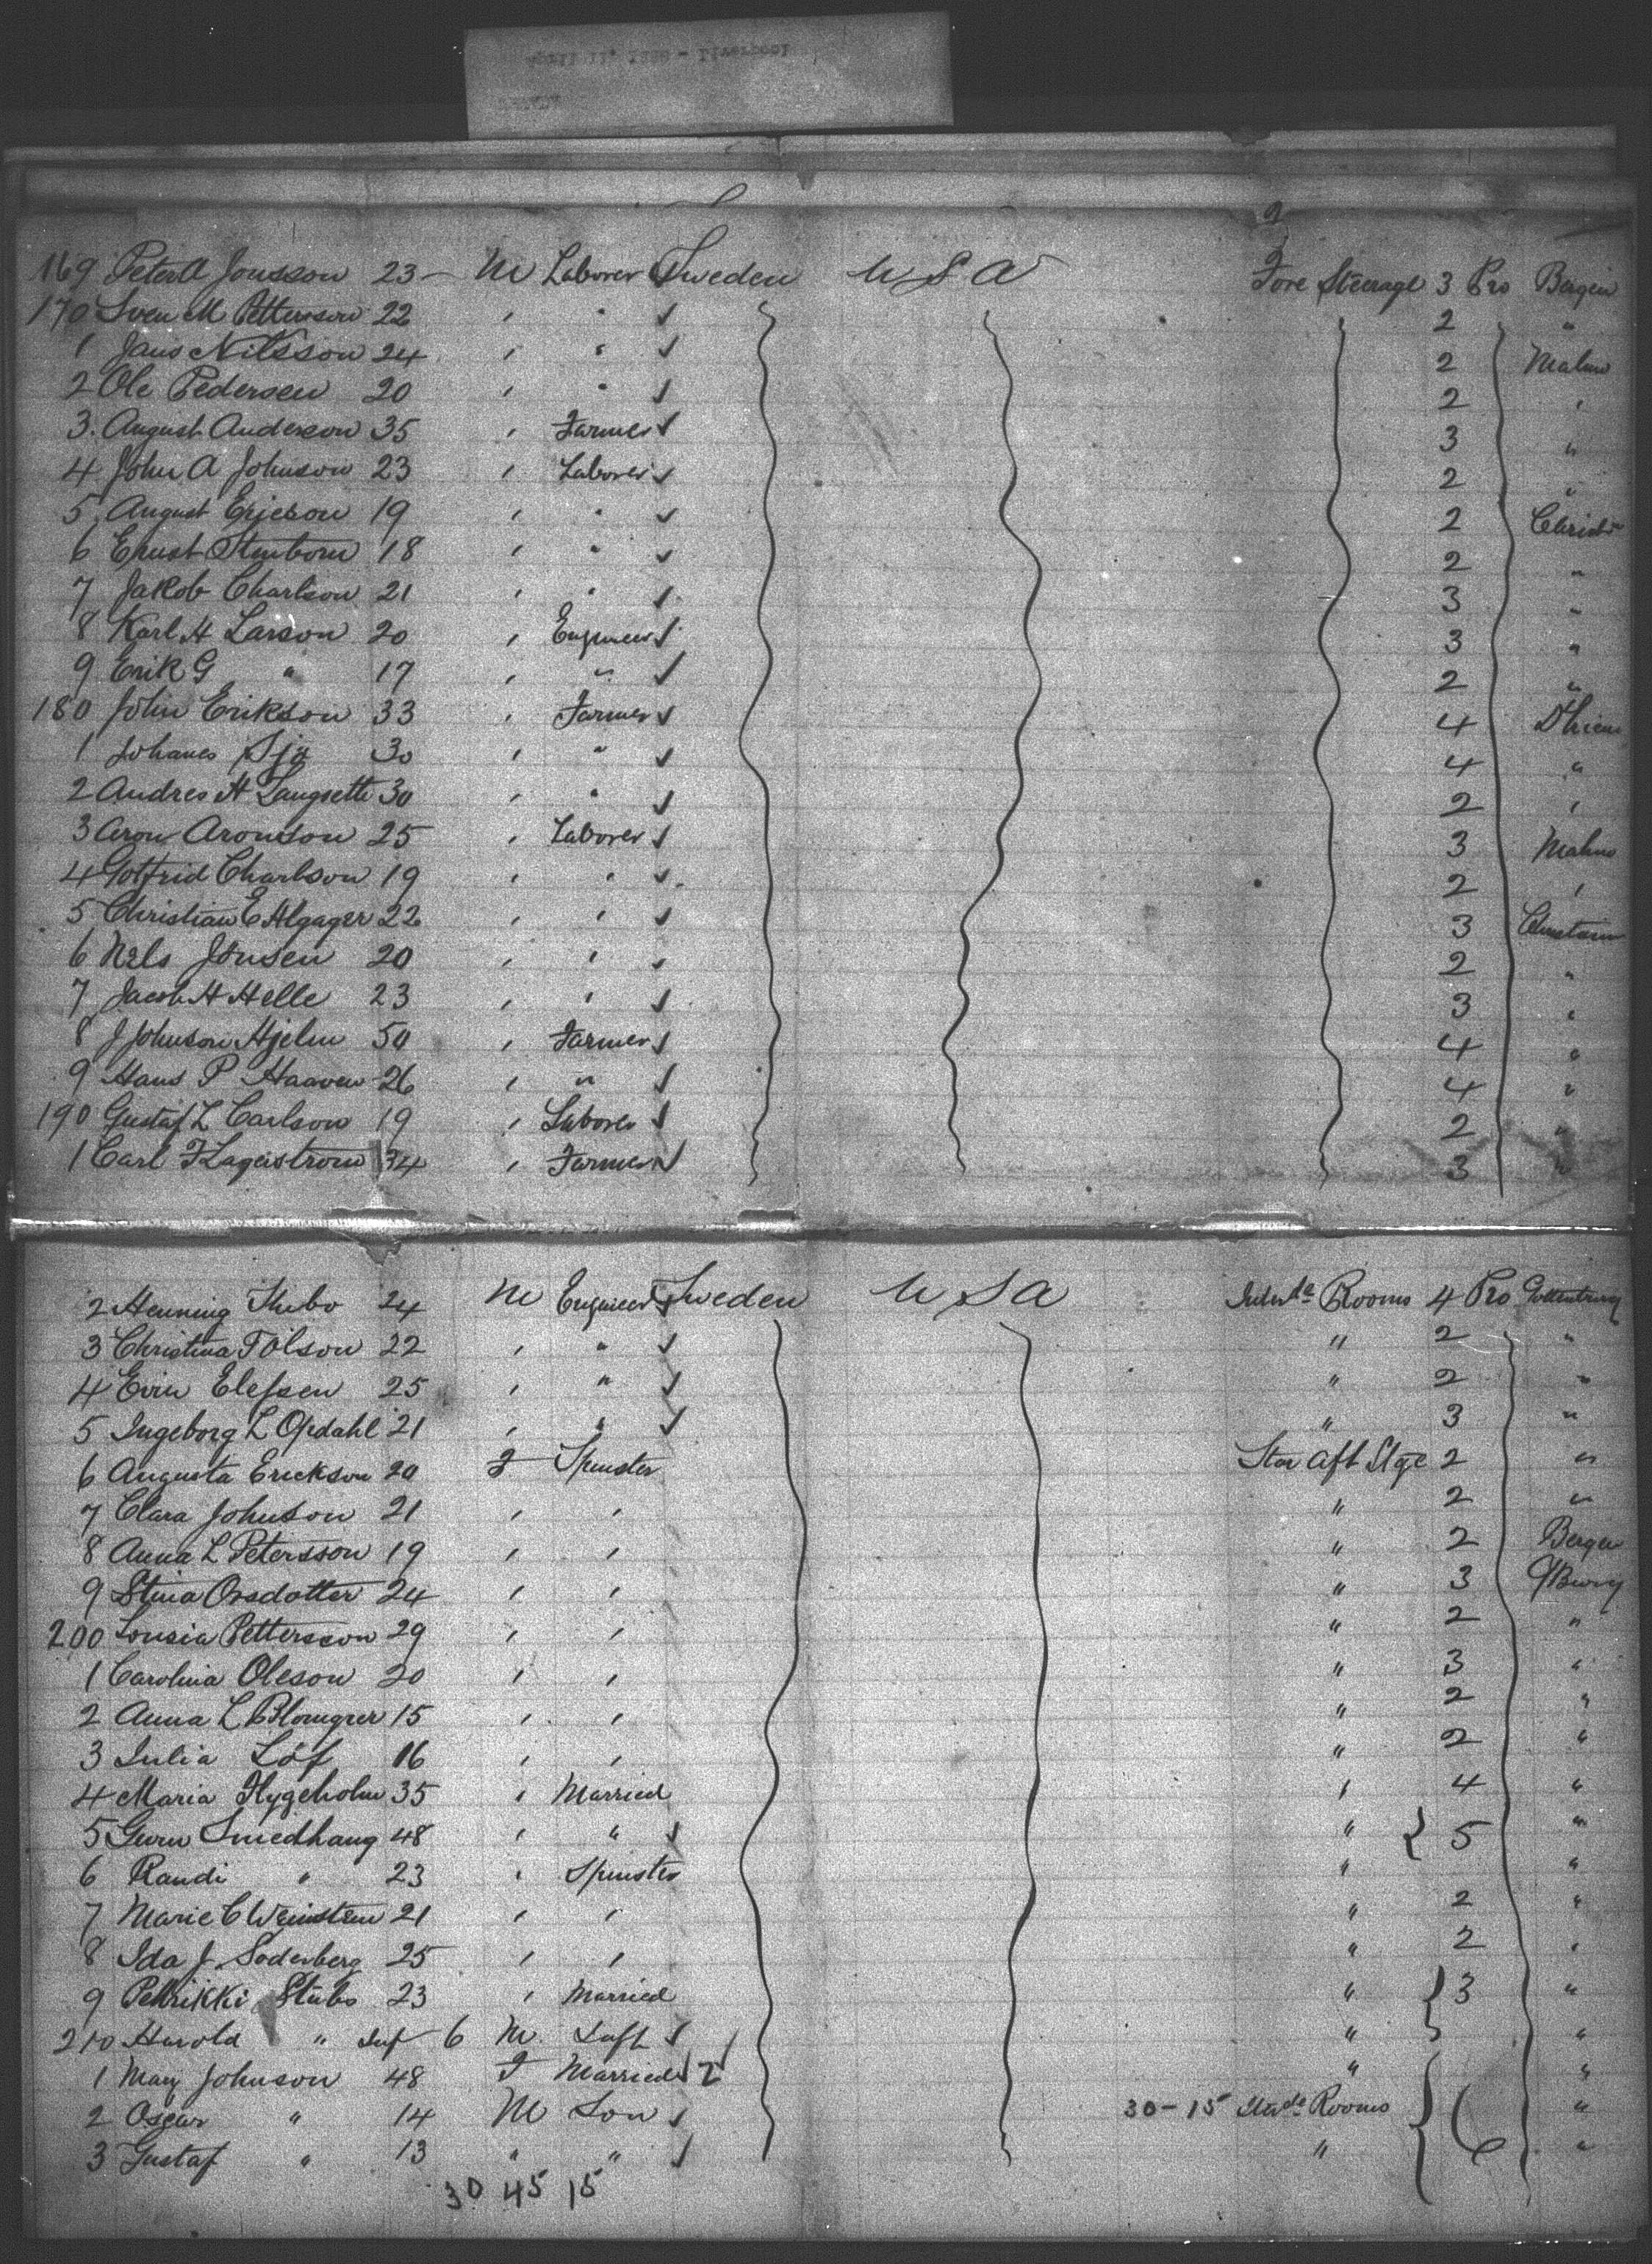 April 11, 1888 - Liverpool
9
169 Peter A Jonsson 23 M Laborer Sweden U S A Fore Steerage 3 Pro Bergen
170 Sven M Pettersson 22 " " 2 "
1 Jans Nilsson 24 " " 2 Malmo
2 Ole Pedersen 20 " " 2 "
3 August Anderson 35 " Farmer 3 "
4 John A Johnson 23 " Laborer 2 "
5 August Ericson 19 " " 2 Christ
6 Ernst Stenborn 18 " " 2 "
7 Jakob Charlson 21 " " 3 "
8 Karl H Larson 20 " Engineer 3 "
9 Erik G " 17 " " 2 "
180 John Erikson 33 " Farmer 4 Dhiem
1 Johanes 30 " " 4 "
2 Andres H Langsette 30 " " 2 "
3 Aron Aronson 25 " Laborer 3 Malmo
4 Gottfrid Charlson 19 " " 2 "
5 Christian E Algager 22 " " 3
6 Nels Jonsen 20 " " 2 "
7 Jacob H Helle 23 " " 3 "
8 J Johnson Hjelm 50 " Farmer 4 "
9 Hans P Haaven 26 " " 4 "
190 Gustaf L Carlson 19 " Laborer 2 "
1 Carl F Lagerstrom 34 " Farmer 3 "
2 Henning Thibo 24 M Engineer Sweden U S A Rooms 4 Pro Gottenburg
3 Christina T Olson 22 " " " 2 "
4 Evin Elefsen 25 " " " 2 "
5 Ingeborg L Opdahl 21 " " " 3 "
6 Augusta Erickson 20 F Spinster Star Aft Stge 2 "
7 Clara Johnson 21 " " " 2 "
8 Anna L Petersson 19 " " " 2 Bergen
9 Stina Orsdotter 24 " " " 3 GBurg
200 Lousia Pettersson 29 " " " 2 "
1 Carolina Oleson 20 " " " 3 "
2 Anna L Blomgrer 15 " " " 2 "
3 Julia Löf 16 " " " 2 "
4 Maria Flygeholm 35 " Married " 4 "
5 Guru Smedhaug 48 " " " 5 "
6 Randi " 23 " Spinster " "
7 Marie C Weinstein 21 " " " 2 "
8 Ida J. Soderberg 25 " " " 2 "
9 Petrikki Stubs 23 " Married " 3 "
210 Harold " Inf 6 M " "
1 Mary Johnson 48 F Married 2 " "
2 Oscar " 14 M Son 30-15 Rooms 6 "
3 Gustaf " 13 " " " "
30 45 15